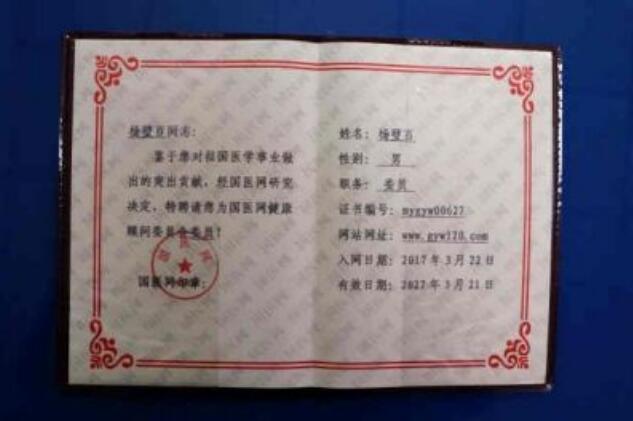 杨璧百同志:
鉴于您对祖国医学事业做
出的突出贡献,经国医网研究
决定,特聘请您为国医网健康
顾问委员会委员!
国医网
国医网印章:
姓名: 杨璧百
性别: 男
职务: 委员
证书编号: mygyw00627
网站网址: www.gyw120.com
入网日期: 2017年3月22日
有效日期: 2027年3月21日